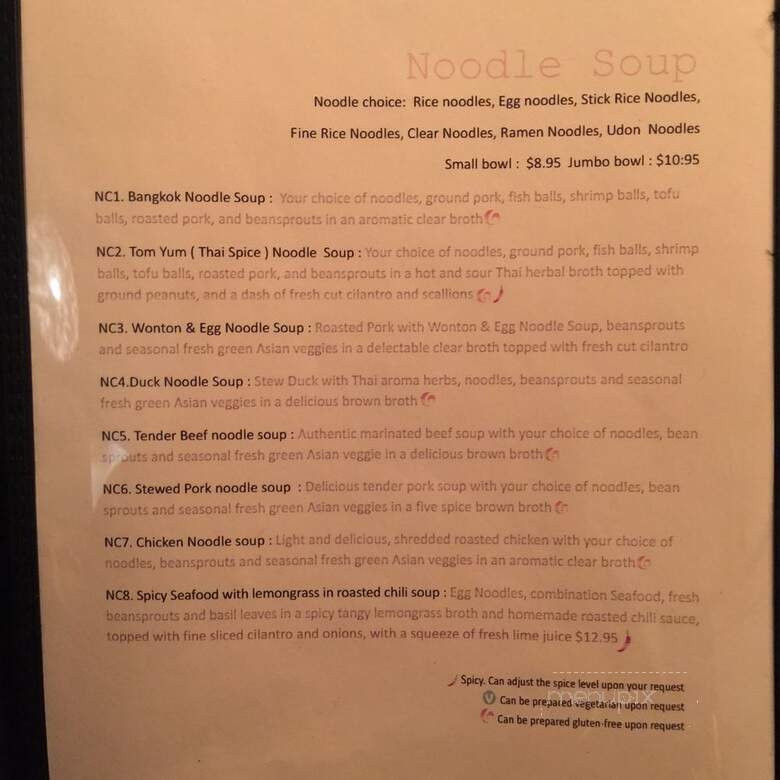 Noodle Soup
Noodle choice: Rice noodles, Egg noodles, Stick Rice Noodles,
Fine Rice Noodles, Clear Noodles, Ramen Noodles, Udon Noodles
Small bowl : $8.95 Jumbo bowl : $10:95
NC1. Bangkok Noodle Soup : Your choice of noodles, ground pork, fish balls, shrimp balls, tofu
balls, roasted pork, and beansprouts in an aromatic clear broth
NC2. Tom Yum ( Thai Spice ) Noodle Soup : Your choice of noodles, ground pork, fish balls, shrimp
balls, tofu balls, roasted pork, and beansprouts in a hot and sour Thai herbal broth topped with
ground peanuts, and a dash of fresh cut cilantro and scallions
NC3. Wonton & Egg Noodle Soup : Roasted Pork with Wonton & Egg Noodle Soup, beansprouts
and seasonal fresh green Asian veggies in a delectable clear broth topped with fresh cut cilantro
NC4.Duck Noodle Soup : Stew Duck with Thai aroma herbs, noodles, beansprouts and seasonal
fresh green Asian veggies in a delicious brown broth
NC5. Tender Beef noodle soup : Authentic marinated beef soup with your choice of noodles, bean
sprouts and seasonal fresh green Asian veggie in a delicious brown broth
NC6. Stewed Pork noodle soup : Delicious tender pork soup with your choice of noodles, bean
sprouts and seasonal fresh green Asian veggies in a five spice brown broth
NC7. Chicken Noodle soup : Light and delicious, shredded roasted chicken with your choice of
noodles, beansprouts and seasonal fresh green Asian veggies in an aromatic clear broth
NC8. Spicy Seafood with lemongrass in roasted chili soup : Egg Noodles, combination Seafood, fresh
beansprouts and basil leaves in a spicy tangy lemongrass broth and homemade roasted chili sauce,
topped with fine sliced cilantro and onions, with a squeeze of fresh lime juice $12.95
Spicy. Can adjust the spice level upon your request
V Can be prepared vegetarian upon request
Can be prepared gluten-free upon request
menupix